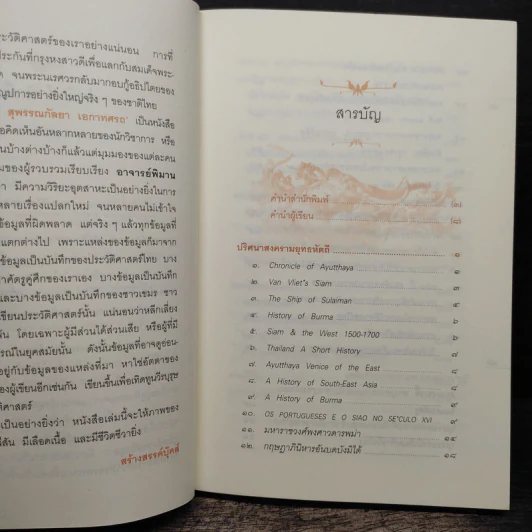 ระวัติศาสตร์ของเราอย่างแน่นอน การที่
ประกันที่กรุงหงสาวดีเพื่อแลกกับสมเด็จพระ-
จนพระนเรศวรกลับมากอบกู้อธิปไตยของ
รูปการอย่างยิ่งใหญ่จริง ๆ ของชาติไทย
สุพรรณกัลยา เอกาทศรถ' เป็นหนังสือ
อคิดเห็นอันหลากหลายของนักวิชาการ หรือ
นบ้างต่างบ้างก็แล้วแต่มุมมองของแต่ละคน
มของผู้รวบรวมเรียบเรียง อาจารย์พิมาน
า มีความวิริยะอุตสาหะเป็นอย่างยิ่งในการ
หลายเรื่องแปลกใหม่ จนหลายคนไม่เข้าใจ
ข้อมูลที่ผิดพลาด แต่จริง ๆ แล้วทุกข้อมูลที่
แตกต่างไป เพราะแหล่งของข้อมูลก็มาจาก
ข้อมูลเป็นบันทึกของประวัติศาสตร์ไทย บาง
าศัตรูคู่ศึกของเราเอง บางข้อมูลเป็นบันทึก
และบางข้อมูลเป็นบันทึกของชาวเขมร ชาว
เขียนประวัติศาสตร์นั้น แน่นอนว่าหลีกเลี่ยง
ัน โดยเฉพาะผู้มีส่วนได้ส่วนเสีย หรือผู้ที่มี
รณ์ในยุคสมัยนั้น ดังนั้นข้อมูลที่อาจดูอ่อน-
อยู่กับข้อมูลของแหล่งที่มา หาใช่อัตตาของ
องผู้เขียนอีกเช่นกัน เขียนขึ้นเพื่อเทิดทูนวีรบุรุษ
ติศาสตร์
เป็นอย่างยิ่งว่า หนังสือเล่มนี้จะให้ภาพของ
ไส้น มีเลือดเนื้อ และมีชีวิตชีวายิ่ง
สร้างสรรค์บุ๊คส์
สารบัญ
คำนำสำนักพิมพ์
คำนำผู้เรียน
ปริศนาสงครามยุทธหัตถี ๑
๑. Chronicle of Ayutthaya ๑
๒ Van Vliet's Siam
๓. The Ship of Sulaiman
๔. History of Burma
๕. Siam & the West 1500-1700
๖. Thailand A Short History ๘
๗. Ayutthaya Venice of the East ๘
๘. A History of South-East Asia ๘
๙. A History of Burma ๙
๑๐. OS PORTUGUESES E O SIAO NO SE'CULO XVI ๙
๑๑. มหาราชวงศ์พงศาวดารพม่า ๑๕
๑๒. กฤษฎาภินิหารอันบดบังมิได้ ๑๘